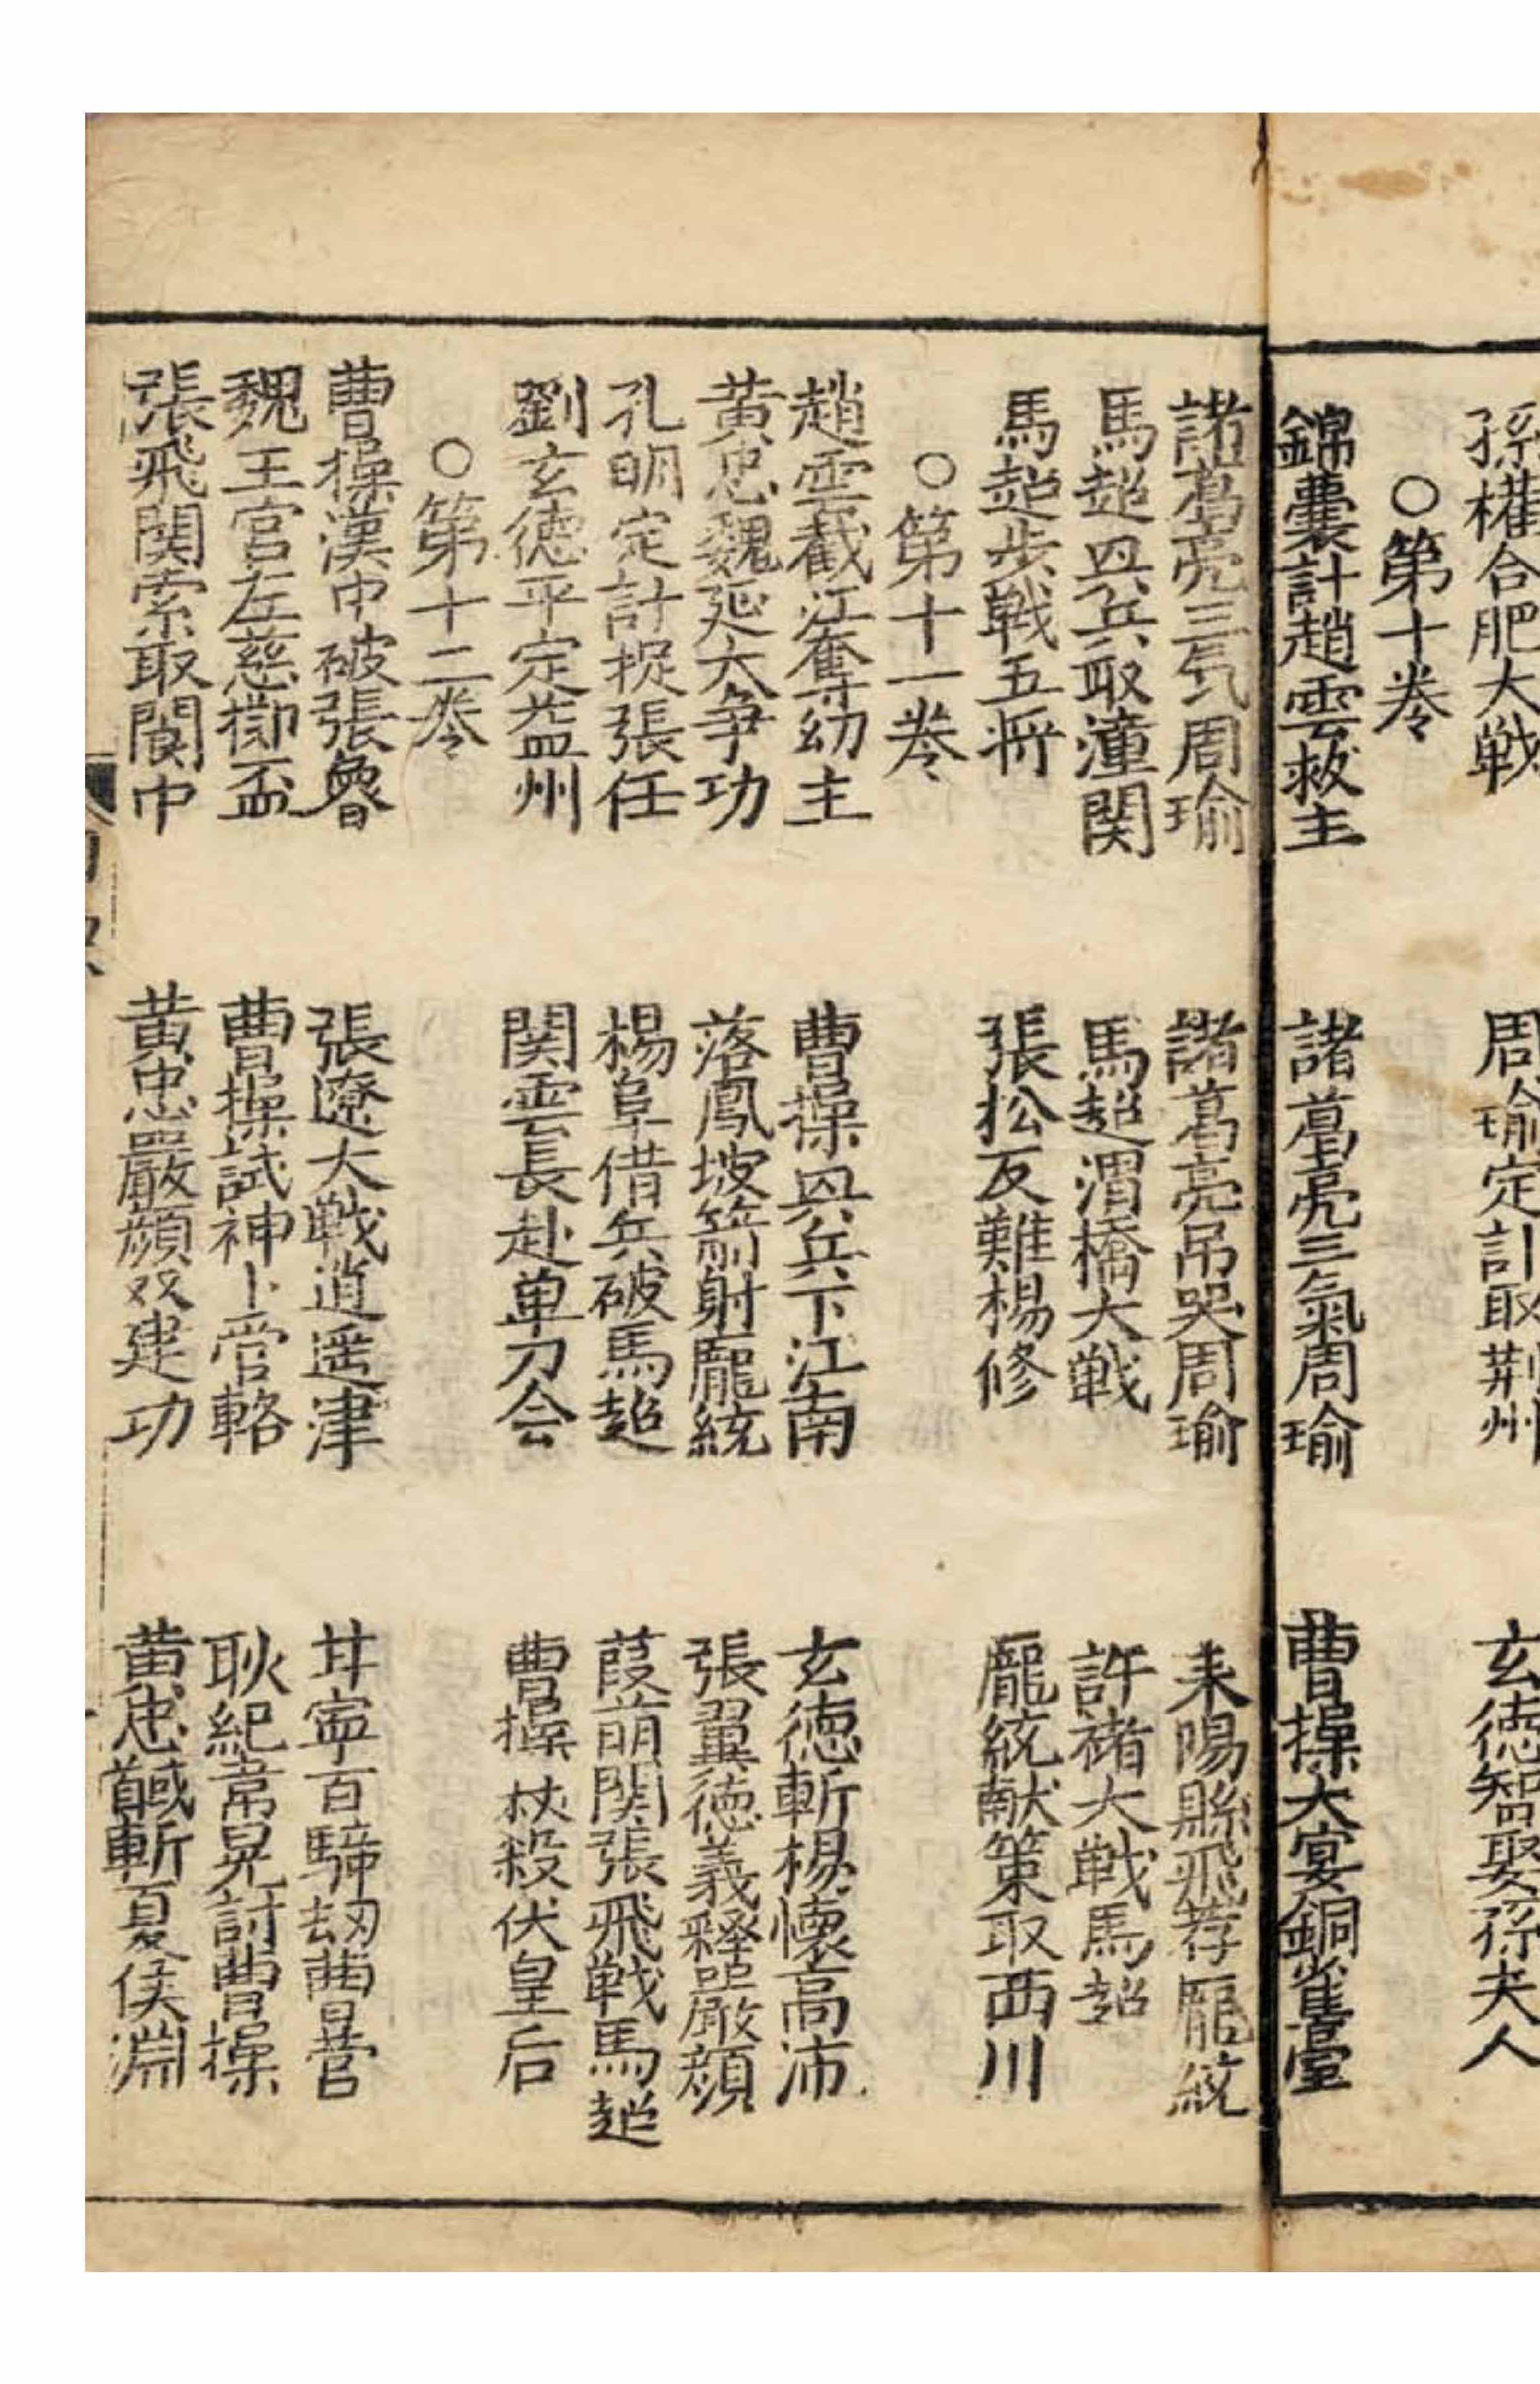 孫權合肥大戦
周瑜定計取荆州
玄德智娶孫夫人
○第十卷
錦囊計趙雲救主
諸葛亮三氣周瑜
曹操大宴銅雀臺
諸葛亮三気周瑜
諸葛亮吊哭周瑜
耒陽縣飛荐龐統
馬超興兵取潼関
馬超渭橋大戦
許褚大戦馬超
馬超步戦五將
張松反難楊修
龐統献策取西川
○第十一卷
趙雲截江奪幼主
曹操興兵下江南
玄德斬楊懷高沛
黃忠魏延大争功
落鳳坡箭射龐統
張翼德義释嚴顔
孔明定計捉張任
楊阜借兵破馬超
葭萌関張飛戦馬超
劉玄德平定益州
関雲長赴单刀会
曹操杖殺伏皇后
○第十二卷
曹操漢中破張魯
張遼大戦逍遥津
甘寧百騎刼曹營
魏王宫左慈擲盃
曹操試神卜管輅
耿紀韋晃討曹操
張飛関索取閬中
黃忠嚴顔双建功
黃忠馘斬夏侯淵